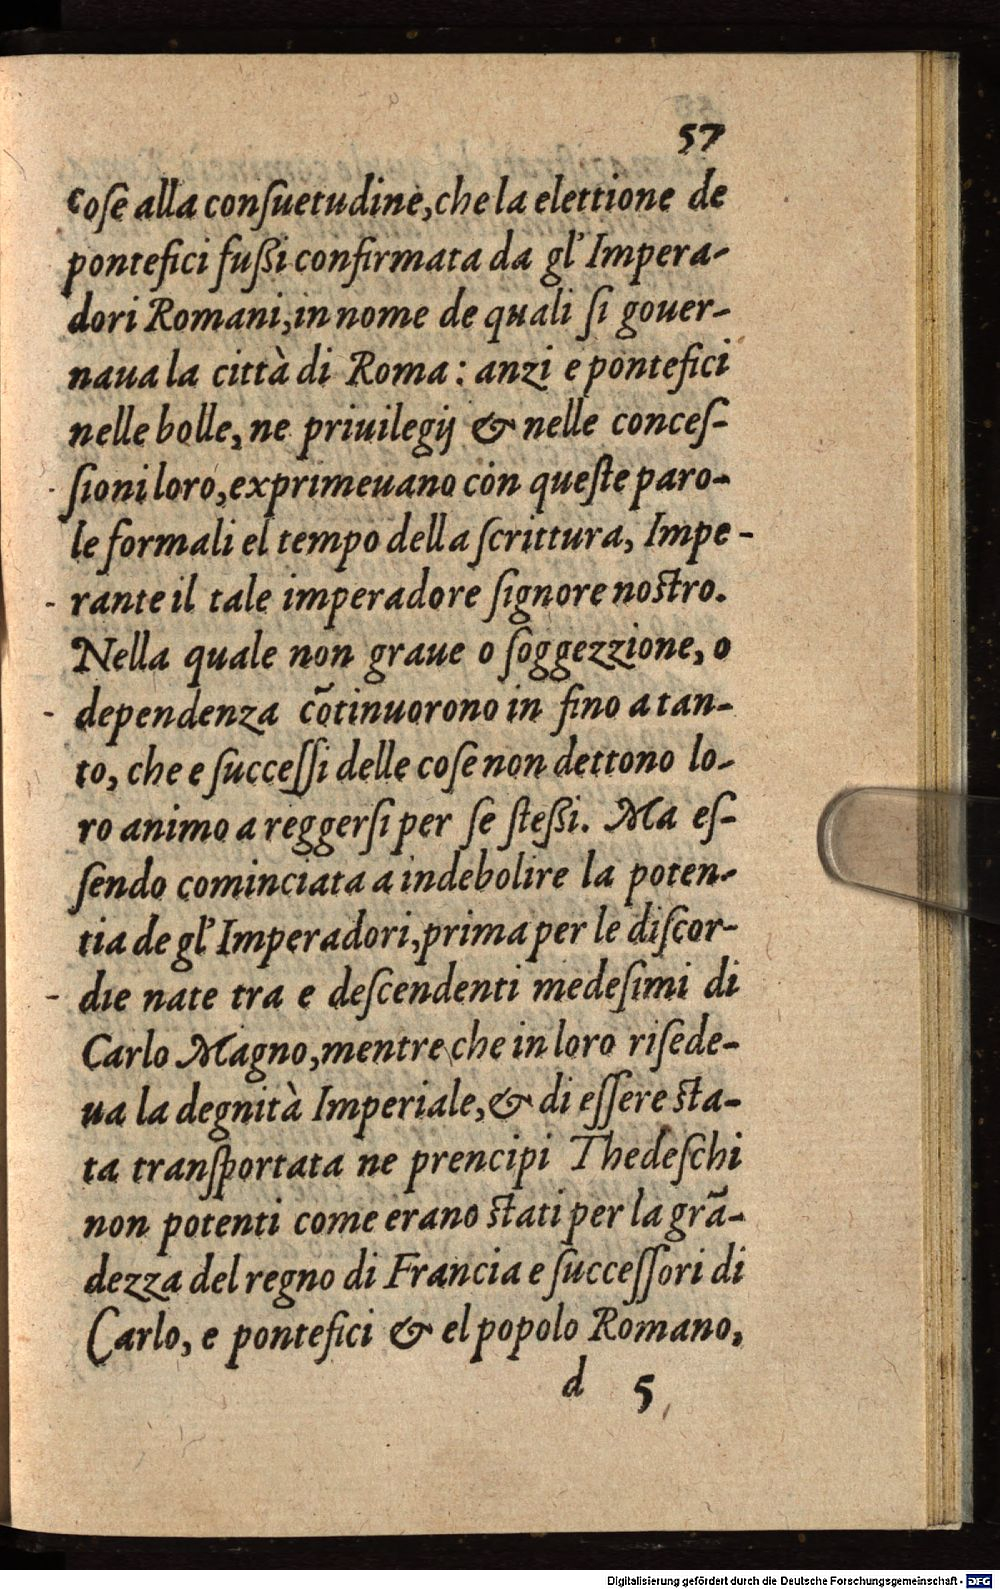 57
coſe alla conſuetudine, che la elettione de
pontefici fußi confirmata da gl' Impera-
dori Romani, in nome de quali ſi gouer-
naua la città di Roma: anzi e pontefici
nelle bolle, ne priuilegij & nelle conceſ-
ſioni loro, exprimeuano con queſte paro-
le formali el tempo della ſcrittura, Impe-
rante il tale imperadore ſignore noſtro.
Nella quale non graue o ſoggezzione, o
dependenza cõtinuorono in fino a tan-
to, che e ſucceſſi delle coſe non dettono lo-
ro animo a reggerſi per ſe ſteßi. Ma eſ-
ſendo cominciata a indebolire la poten-
tia de gl' Imperadori, prima per le diſcor-
die nate tra e deſcendenti medeſimi di
Carlo Magno, mentre che in loro riſede-
ua la degnità Imperiale, & di eſſere ſta-
ta tranſportata ne prencipi Thedeſchi
non potenti come erano ſtati per la grã-
dezza del regno di Francia e ſucceſſori di
Carlo, e pontefici & el popolo Romano,
d 5
Digitalisierung gefördert durch die Deutsche Forschungsgemeinschaft - DFG